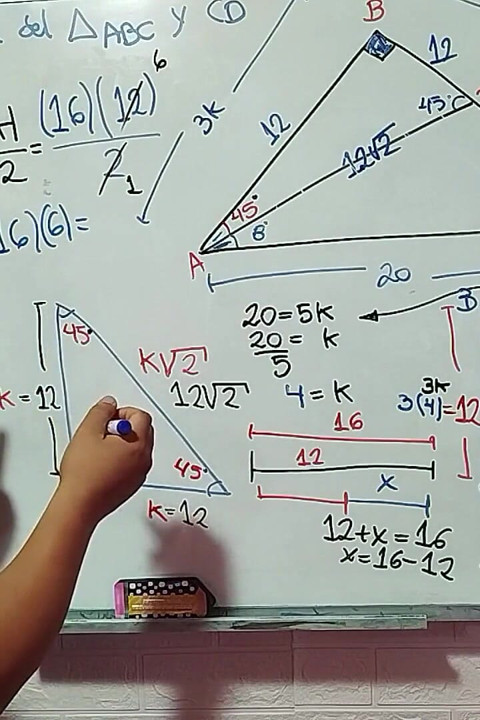 del △ABC y
B
12
6
H/2 = (16)(12)/2 1
3K
12
45°
12√2
16)(6)=
45°
8°
A
20
45°
20=5K
20/5 = K
K√2
12√2
4=K
3K
3(4)=12
K=12
16
12
45°
x
K=12
12+x=16
x=16-12